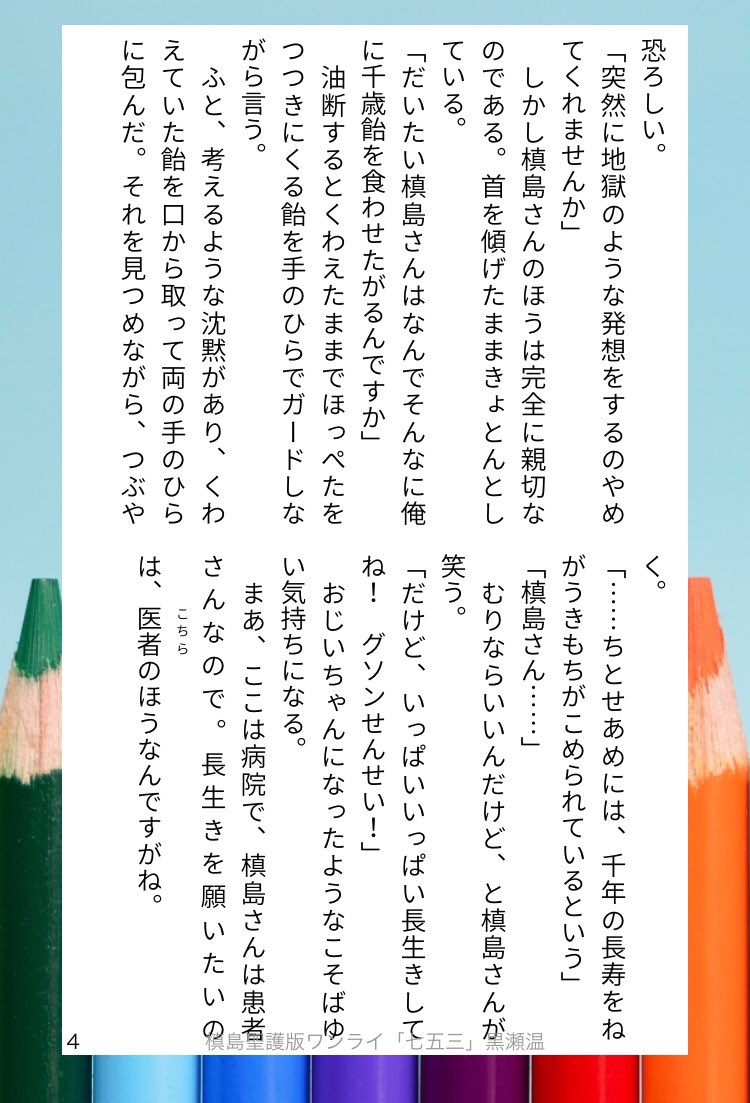 恐ろしい。
「突然に地獄のような発想をするのやめ
てくれませんか」
　しかし槙島さんのほうは完全に親切な
のである。首を傾げたままきょとんとし
ている。
「だいたい槙島さんはなんでそんなに俺
に千歳飴を食わせたがるんですか」
　油断するとくわえたままでほっぺたを
つつきにくる飴を手のひらでガードしな
がら言う。
　ふと、考えるような沈黙があり、くわ
えていた飴を口から取って両の手のひら
に包んだ。それを見つめながら、つぶや
く。
「……ちとせあめには、千年の長寿をね
がうきもちがこめられているという」
「槙島さん……」
　むりならいいんだけど、と槙島さんが
笑う。
「だけど、いっぱいいっぱい長生きして
ね！　グソンせんせい！」
　おじいちゃんになったようなこそばゆ
い気持ちになる。
　まあ、ここは病院で、槙島さんは患者
さんなので。長生きを願いたいの
こちら
は、医者のほうなんですがね。
4
槙島聖護版ワンライ「七五三」黒瀬温